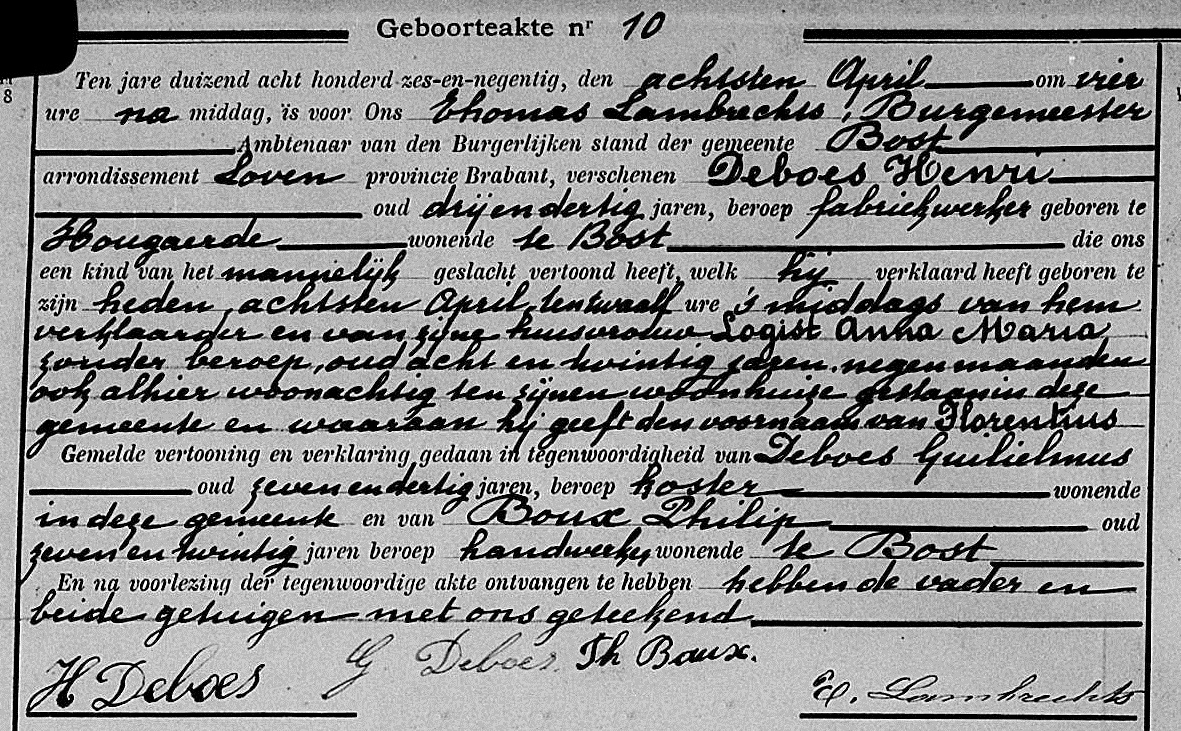 Geboorteakte nr 10
Ten jare duizend acht honderd zes-en-negentig, den achtsten April om vier
8
ure na middag, is voor Ons Thomas Lambrechts, Burgemeester
Ambtenaar van den Burgerlijken stand der gemeente Bost
arrondissement Loven provincie Brabant, verschenen Deboes Henri
oud drijendertig jaren, beroep fabriekwerker geboren te
Hougaerde wonende te Bost die ons
een kind van het mannelijk geslacht vertoond heeft, welk hij verklaard heeft geboren te
zijn heden achtsten April ten twaalf ure 's middags van hem
verklaarder en van zijne huisvrouw Logist Anna Maria
zonder beroep, oud acht en twintig jaren negen maanden
ook alhier woonachtig ten zijnen woonhuize gestaan in deze
gemeente en waaraan hij geeft den voornaam van Florentius
Gemelde vertooning en verklaring gedaan in tegenwoordigheid van Deboes Guilielmus
oud zevenendertig jaren, beroep koster wonende
in deze gemeente en van Boux Philip oud
zeven en twintig jaren beroep handwerker wonende te Bost
En na voorlezing der tegenwoordige akte ontvangen te hebben hebben de vader en
beide getuigen met ons geteekend
H Deboes G Deboes Ph Boux.
Lambrechts